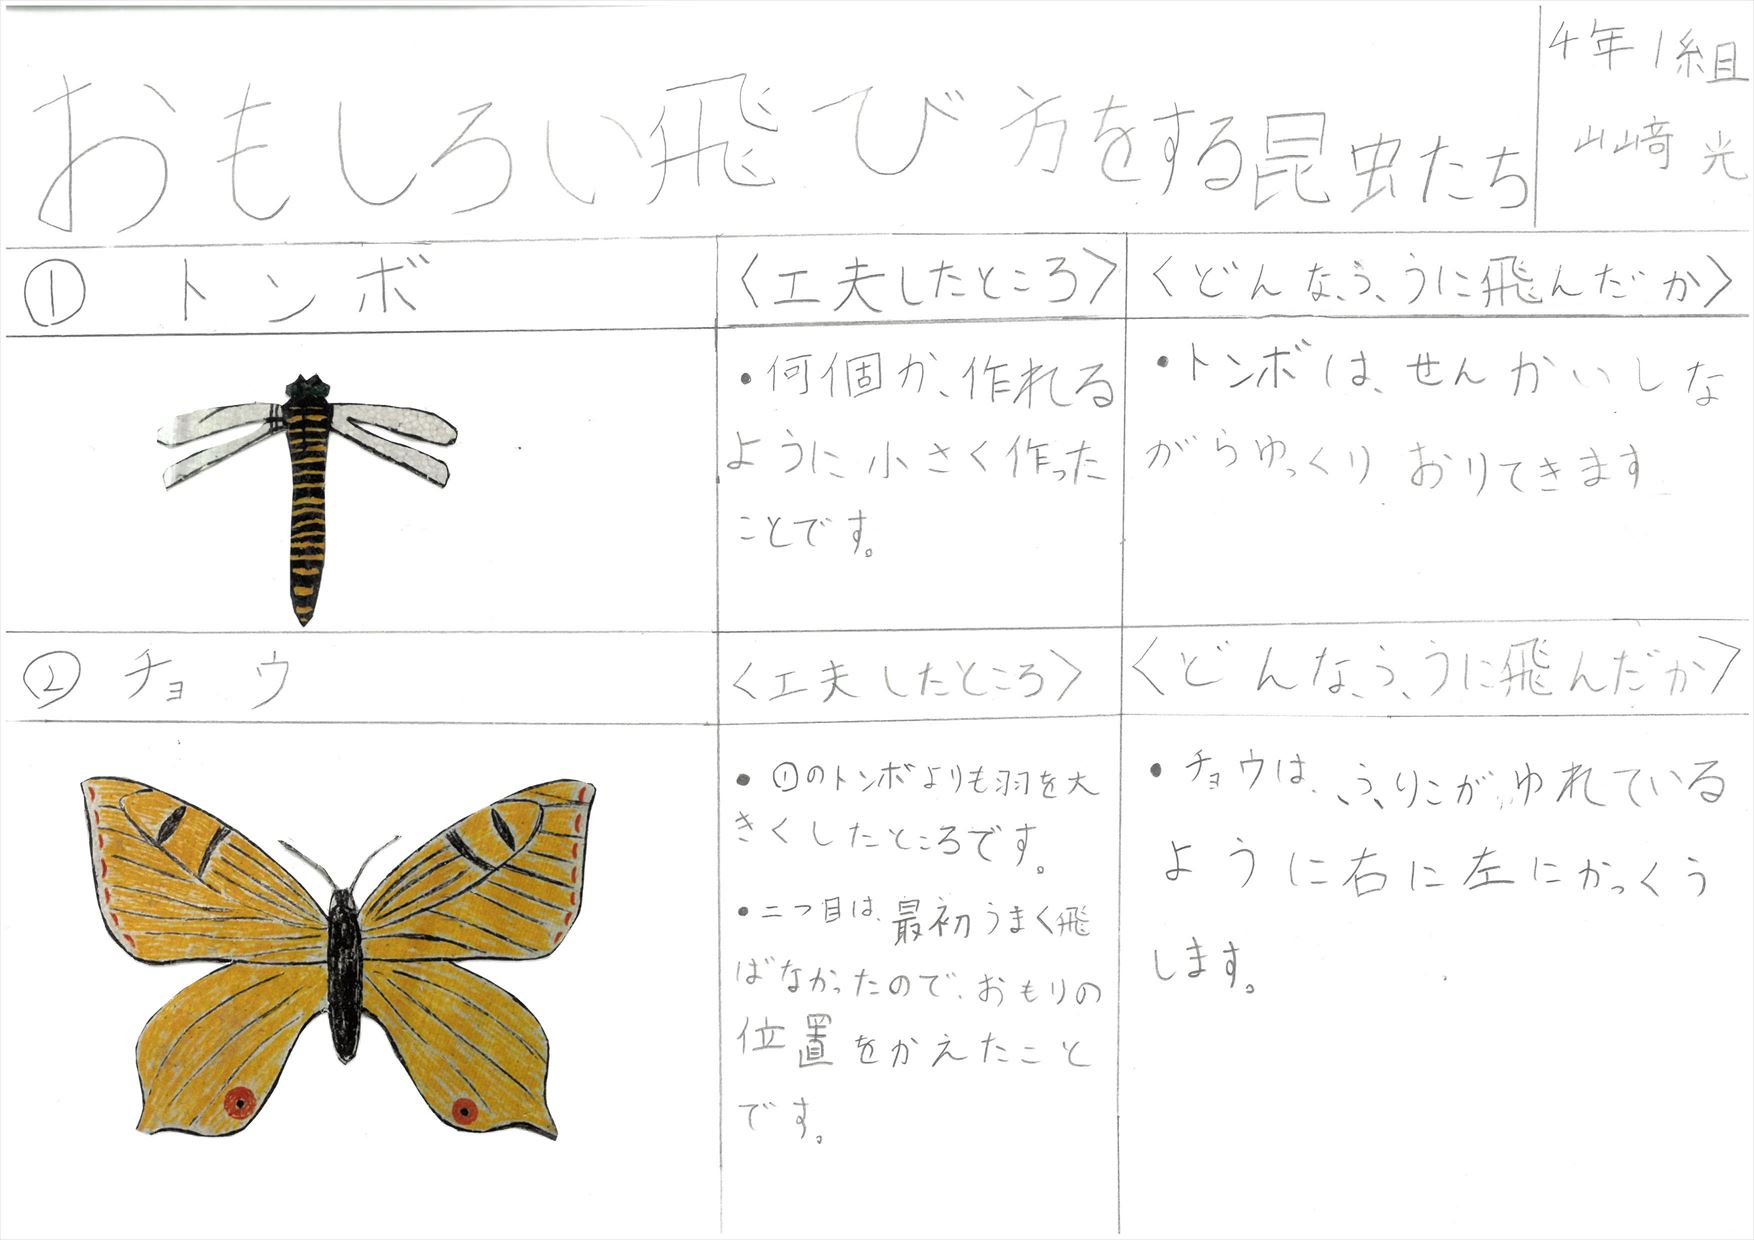 おもしろい飛び方をする昆虫たち
4年1組
山崎 光
① トンボ
〈工夫したところ〉
〈どんなふうに飛んだか〉
・何個か、作れる
ように小さく作った
ことです。
・トンボは、せんかいしな
がらゆっくりおりてきます
② チョウ
〈工夫したところ〉
〈どんなふうに飛んだか〉
・①のトンボよりも羽を大
きくしたところです。
・二つ目は、最初うまく飛
ばなかったので、おもりの
位置をかえたこと
です。
・チョウは、ふりこがゆれている
ように右に左にかっくう
します。